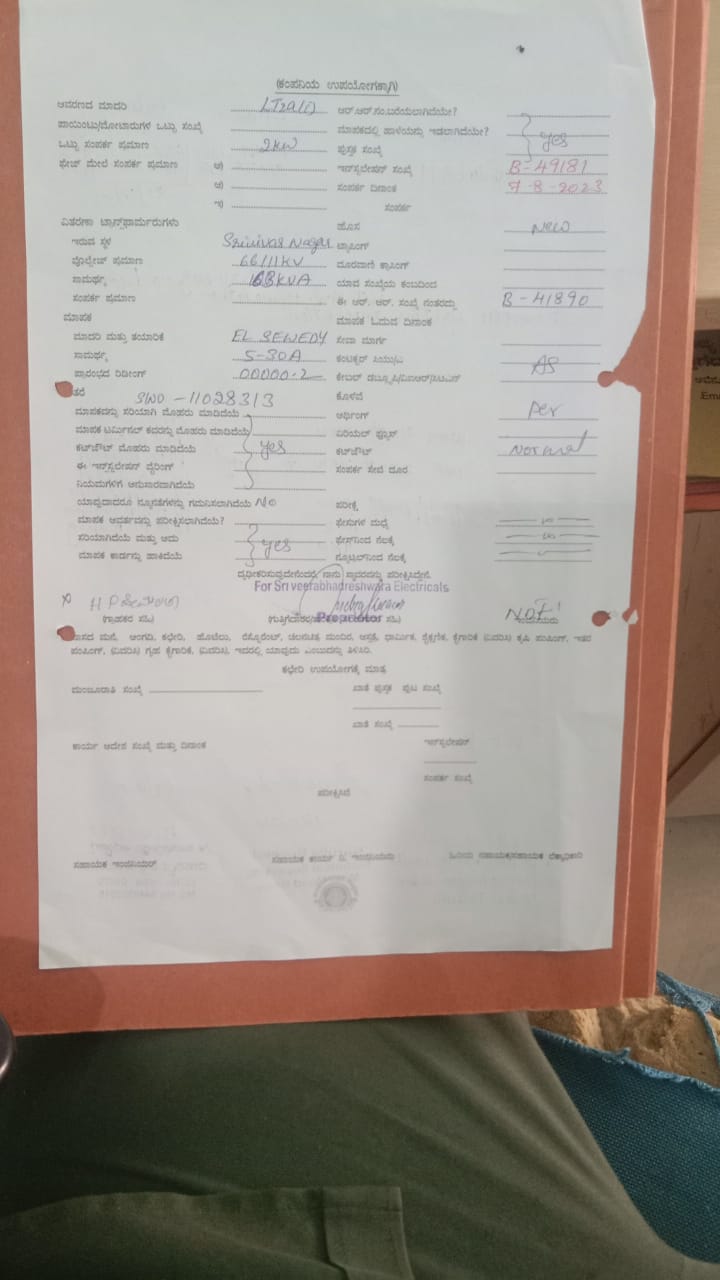 (ಕಂಪನಿಯ ಉಪಯೋಗಕ್ಕಾಗಿ)
ಆವರಣದ ಮಾದರಿ LT2a(i) ಆರ್.ಆರ್.ಸಂ.ಬರೆಯಲಾಗಿದೆಯೇ?
ಪಾಯಿಂಟು/ಮೋಟಾರುಗಳ ಒಟ್ಟು ಸಂಖ್ಯೆ ಮಾಪಕದಲ್ಲಿ ಹಾಳೆಯನ್ನು ಇಡಲಾಗಿದೆಯೇ? yes
ಒಟ್ಟು ಸಂಪರ್ಕ ಪ್ರಮಾಣ 2kw ಪುಸ್ತಕ ಸಂಖ್ಯೆ
ಫೇಜ್ ಮೇಲೆ ಸಂಪರ್ಕ ಪ್ರಮಾಣ ಅ) ಇನ್‌ಸ್ಟಲೇಷನ್ ಸಂಖ್ಯೆ B-49181
ಆ) ಸಂಪರ್ಕ ದಿನಾಂಕ 7-8-2023
ಇ) ಸಂಪರ್ಕ
ವಿತರಣಾ ಟ್ರಾನ್ಸ್‌ಫಾರ್ಮರುಗಳು ಹೊಸ New
ಇರುವ ಸ್ಥಳ Srinivas Nagar ಟ್ರಾಸಿಂಗ್
ವೊಲ್ಟೇಜ್ ಪ್ರಮಾಣ 66/11KV ದೂರವಾಣಿ ಕ್ರಾಸಿಂಗ್
ಸಾಮರ್ಥ್ಯ KVA ಯಾವ ಸಂಖ್ಯೆಯ ಕಂಬದಿಂದ
ಸಂಪರ್ಕ ಪ್ರಮಾಣ ಈ ಆರ್. ಆರ್. ಸಂಖ್ಯೆ ನಂತರದ್ದು B-41890
ಮಾಪಕ ಮಾಪಕ ಓದುವ ದಿನಾಂಕ
ಮಾದರಿ ಮತ್ತು ತಯಾರಿಕೆ EL SEWEDY ಸೇವಾ ಮಾರ್ಗ
ಸಾಮರ್ಥ್ಯ 5-30A ಕಂಡಕ್ಟರ್ AS
ಪ್ರಾರಂಭದ ರಿಡಿಂಗ್ 00000.2 ಕೇಬಲ್
ತರೆ SNO-11028313 ಕೊಳವೆ
ಮಾಪಕವನ್ನು ಸರಿಯಾಗಿ ಮೊಹರು ಮಾಡಿದೆಯೆ ಅರ್ಥಿಂಗ್ per
ಮಾಪಕ ಟರ್ಮಿನಲ್ ಕವರನ್ನು ಮೊಹರು ಮಾಡಿದೆಯೆ ಏರಿಯಲ್ ಫ್ಯೂಸ್
ಕಟ್‌ಔಟ್ ಮೊಹರು ಮಾಡಿದೆಯೆ yes ಕಟ್‌ಔಟ್ Normal
ಈ ಇನ್‌ಸ್ಟಲೇಷನ್ ವೈರಿಂಗ್ ಸಂಪರ್ಕ ಸೇವೆ ದೂರ
ನಿಯಮಗಳಿಗೆ ಅನುಸಾರವಾಗಿದೆಯೆ
ಯಾವುದಾದರೂ ನ್ಯೂನತೆಗಳನ್ನು ಗಮನಿಸಲಾಗಿದೆಯೆ No ಪರೀಕ್ಷೆ
ಮಾಪಕ ಆವರ್ತವನ್ನು ಪರಿಕ್ಷಿಸಲಾಗಿದೆಯೆ? ಫೇಸುಗಳ ಮಧ್ಯೆ
ಸರಿಯಾಗಿದೆಯೆ ಮತ್ತು ಅದು yes ಫೇಸ್‌ನಿಂದ ನೆಲಕ್ಕೆ
ಮಾಪಕ ಕಾರ್ಡನ್ನು ಹಾಕಿದೆಯೆ ನ್ಯೂಟ್ರಲ್‌ನಿಂದ ನೆಲಕ್ಕೆ
ದೃಢೀಕರಿಸುವುದೇನೆಂದರೆ, ನಾನು ಸ್ಥಾವರವನ್ನು ಪರಿಕ್ಷಿಸಿದ್ದೇನೆ.
For Sri veerabhadreshwara Electricals
Proprietor
(ಗ್ರಾಹಕರ ಸಹಿ) (ಗುತ್ತಿಗೆದಾರರ ಸಹಿ)
ವಾಸದ ಮನೆ, ಅಂಗಡಿ, ಕಛೇರಿ, ಹೊಟೆಲು, ರೆಸ್ಟೋರೆಂಟ್, ಚಲನಚಿತ್ರ ಮಂದಿರ, ಆಸ್ಪತ್ರೆ, ಧಾರ್ಮಿಕ, ಶೈಕ್ಷಣಿಕ, ಕೈಗಾರಿಕೆ (ವಿವರಿಸಿ) ಕೃಷಿ ಪಂಪಿಂಗ್, ಇತರ
ಪಂಪಿಂಗ್, (ವಿವರಿಸಿ) ಗೃಹ ಕೈಗಾರಿಕೆ, (ವಿವರಿಸಿ), ಇದರಲ್ಲಿ ಯಾವುದು ಎಂಬುದನ್ನು ತಿಳಿಸಿರಿ.
ಕಛೇರಿ ಉಪಯೋಗಕ್ಕೆ ಮಾತ್ರ
ಮಂಜೂರಾತಿ ಸಂಖ್ಯೆ ಖಾತೆ ಪುಸ್ತಕ ಪುಟ ಸಂಖ್ಯೆ
ಖಾತೆ ಸಂಖ್ಯೆ
ಕಾರ್ಯ ಆದೇಶ ಸಂಖ್ಯೆ ಮತ್ತು ದಿನಾಂಕ ಇನ್‌ಸ್ಟಲೇಷನ್
ಸಂಪರ್ಕ ಸಂಖ್ಯೆ
ಪರೀಕ್ಷಿಸಿದೆ
ಸಹಾಯಕ ಇಂಜಿನಿಯರ್ ಸಹಾಯಕ ಕಾರ್ಯ ನಿ. ಇಂಜಿನಿಯರು ಹಿರಿಯ ಸಹಾಯಕ/ಸಹಾಯಕ ಲೆಕ್ಕಾಧಿಕಾರಿ